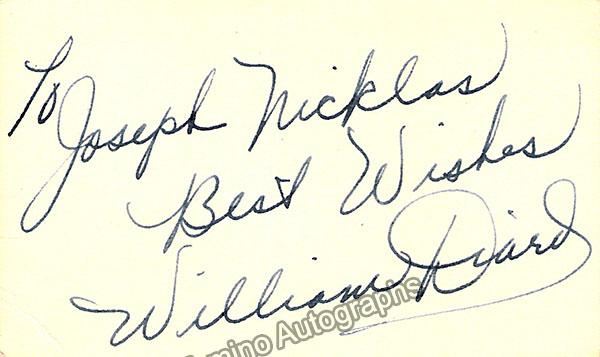 To Joseph Nicklas
Best Wishes
William Diard
mino Autographs